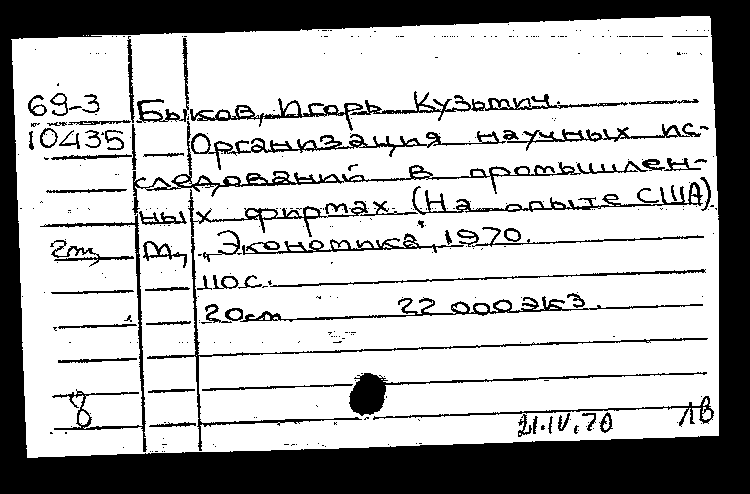 69-3 Быков, Игорь Кузьмич.
10435 Организация научных ис-
следований в промышлен-
ных фирмах. (На опыте США)
М., „Экономика", 1970.
110 с.
20 см 22 000 экз.
8
21.IV.70 ЛВ